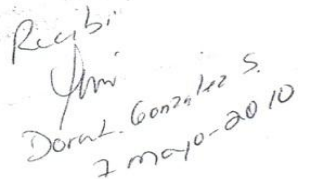 Recibi
Dora L. Gonzalez S.
7 mayo-2010